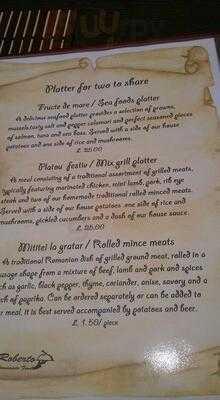 Platter for two to share
Fructe de mare / Sea foods platter
A delicious seafood platter provides a selection of prawns,
mussels, tasty salt and pepper calamari and perfect seasoned pieces
of salmon, tuna and sea bass. Served with a side of our house
potatoes and one side of rice and mushrooms.
£ 25.00
Platou festiv / Mix grill platter
A meal consisting of a traditional assortment of grilled meats,
typically featuring marinated chicken, mint lamb, pork, rib eye
steak and two of our homemade traditional rolled minced meats.
Served with a side of our house potatoes, one side of rice and
mushrooms, pickled cucumbers and a dash of our house sauce.
£ 25.00
Mititei la gratar / Rolled mince meats
A traditional Romanian dish of grilled ground meat, rolled in a
sausage shape from a mixture of beef, lamb and pork and spices
such as garlic, black pepper, thyme, coriander, anise, savory and a
touch of paprika. Can be ordered separately or can be added to
your meal, it is best served accompanied by potatoes and beer.
£ 1.50/ piece
Roberto